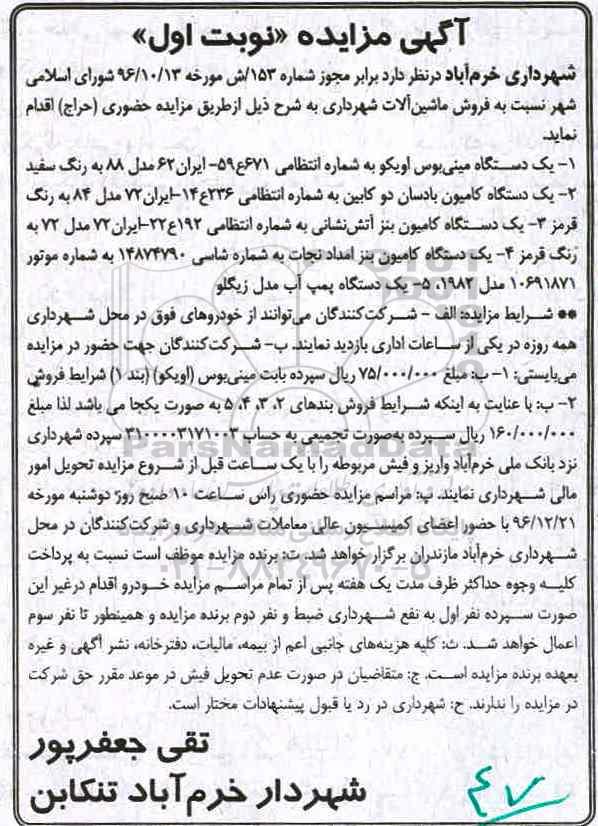 آگهی مزایده «نوبت اول»
شهرداری خرم‌آباد درنظر دارد برابر مجوز شماره ۱۵۳/ش مورخه ۹۶/۱۰/۱۳ شورای اسلامی
شهر نسبت به فروش ماشین‌آلات شهرداری به شرح ذیل ازطریق مزایده حضوری (حراج) اقدام
نماید.
۱- یک دستگاه مینی‌بوس اویکو به شماره انتظامی ۶۷۱ع۵۹- ایران۶۲ مدل ۸۸ به رنگ سفید
۲- یک دستگاه کامیون بادسان دو کابین به شماره انتظامی ۲۳۶ع۱۴-ایران۷۲ مدل ۸۴ به رنگ
قرمز ۳- یک دستگاه کامیون بنز آتش‌نشانی به شماره انتظامی ۱۹۲ع۲۲-ایران۷۲ مدل ۷۲ به
رنگ قرمز ۴- یک دستگاه کامیون بنز امداد نجات به شماره شاسی ۱۴۸۷۴۷۹۰ به شماره موتور
۱۰۶۹۱۸۷۱ مدل ۱۹۸۲، ۵- یک دستگاه پمپ آب مدل زیگلو
** شرایط مزایده: الف - شرکت‌کنندگان می‌توانند از خودروهای فوق در محل شهرداری
همه روزه در یکی از ساعات اداری بازدید نمایند. ب- شرکت‌کنندگان جهت حضور در مزایده
می‌بایستی: ۱- ب: مبلغ ۷۵/۰۰۰/۰۰۰ ریال سپرده بابت مینی‌بوس (اویکو) (بند ۱) شرایط فروش
۲- ب: با عنایت به اینکه شرایط فروش بندهای ۲، ۳، ۴، ۵ به صورت یکجا می باشد لذا مبلغ
۱۶۰/۰۰۰/۰۰۰ ریال سپرده به‌صورت تجمیعی به حساب ۳۱۰۰۰۰۳۱۷۱۰۰۳ سپرده شهرداری
نزد بانک ملی خرم‌آباد واریز و فیش مربوطه را با یک ساعت قبل از شروع مزایده تحویل امور
مالی شهرداری نمایند. پ: مراسم مزایده حضوری راس ساعت ۱۰ صبح روز دوشنبه مورخه
۹۶/۱۲/۲۱ با حضور اعضای کمیسیون عالی معاملات شهرداری و شرکت‌کنندگان در محل
شهرداری خرم‌آباد مازندران برگزار خواهد شد. ت: برنده مزایده موظف است نسبت به پرداخت
کلیه وجوه حداکثر ظرف مدت یک هفته پس از تمام مراسم مزایده خودرو اقدام درغیر این
صورت سپرده نفر اول به نفع شهرداری ضبط و نفر دوم برنده مزایده و همینطور تا نفر سوم
اعمال خواهد شد. ث: کلیه هزینه‌های جانبی اعم از بیمه، مالیات، دفترخانه، نشر آگهی و غیره
بعهده برنده مزایده است. ج: متقاضیان در صورت عدم تحویل فیش در موعد مقرر حق شرکت
در مزایده را ندارند. ح: شهرداری در رد یا قبول پیشنهادات مختار است.
تقی جعفرپور
شهردار خرم‌آباد تنکابن
۴۷
ParsNamadData
۰۲۱-۸۸۳۴۹۶۷۰-۵